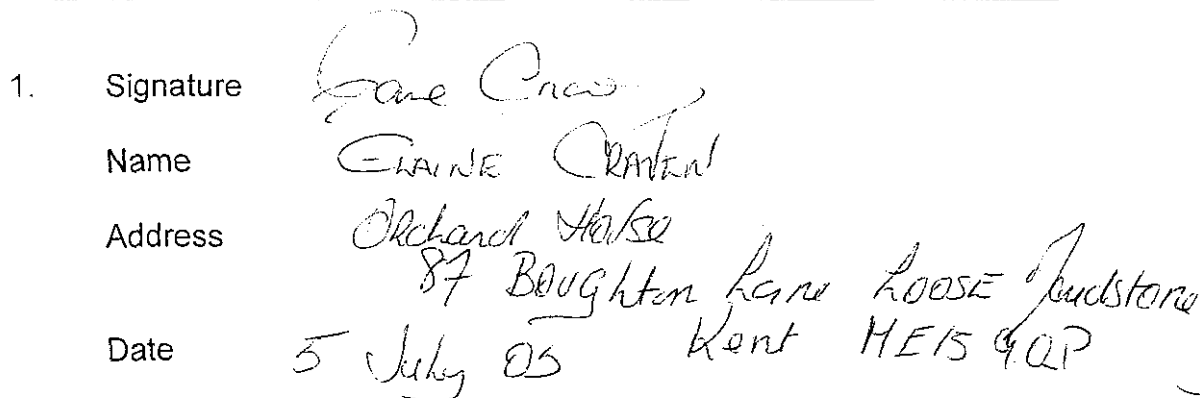 1. Signature
Name ELAINE CRAVEN
Address Orchard House
87 Boughton Lane LOOSE Maidstone
Kent ME15 9QP
Date 5 July 05